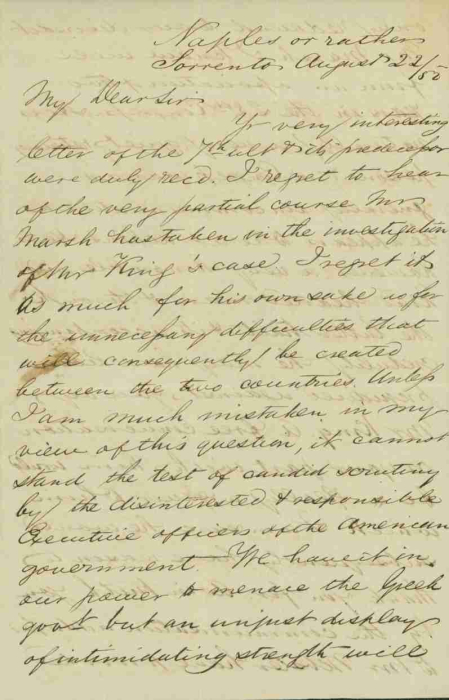 Naples or rather
Sorrento August 22/50
My Dear Sir
Yr very interesting
letter of the 7th ult & its predecessor
were duly recd. I regret to hear
of the very partial course Mr
Marsh has taken in the investigation
of Mr King's case I regret it
as much for his own sake as for
the unnecessary difficulties that
will consequently be created
between the two countries. Unless
I am much mistaken in my
view of this question, it cannot
stand the test of candid scrutiny
by the disinterested & responsible
Executive officers of the American
government. We have it in
our power to menace the Greek
govt but an unjust display
of intimidating strength will